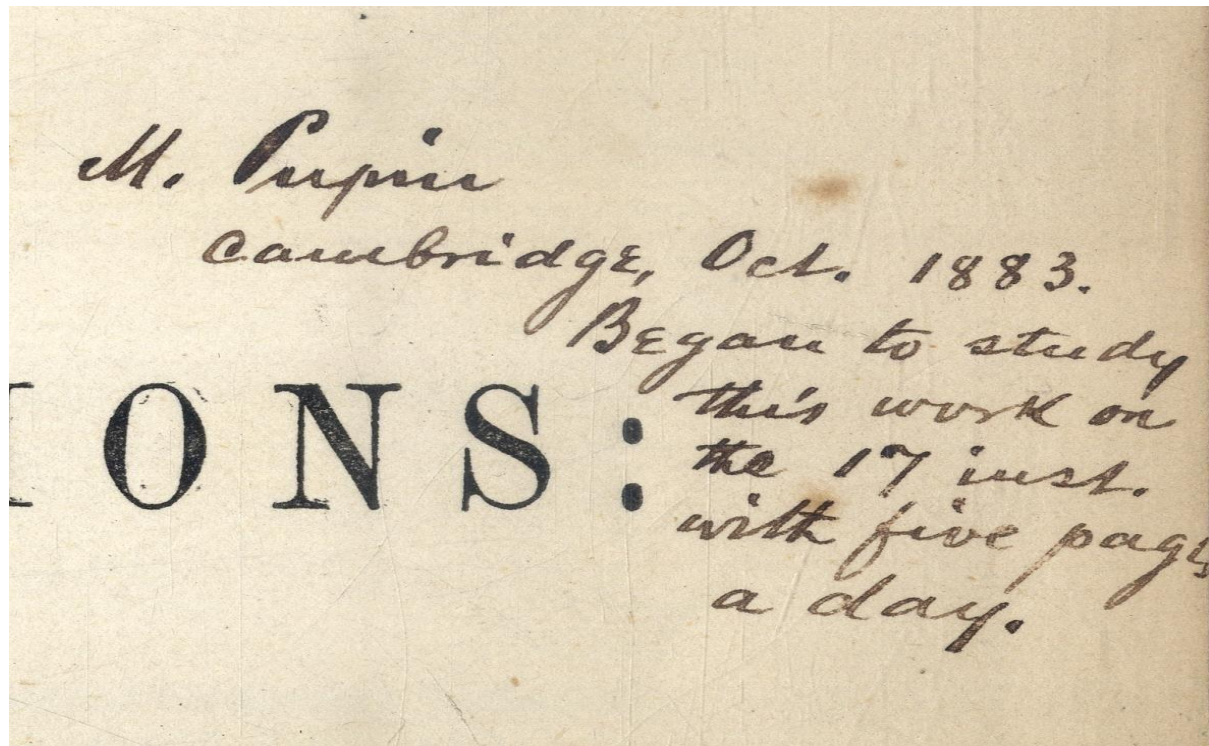 M. Pupin
Cambridge, Oct. 1883.
Began to study
IONS:
this work on
the 17 inst.
with five pages
a day.